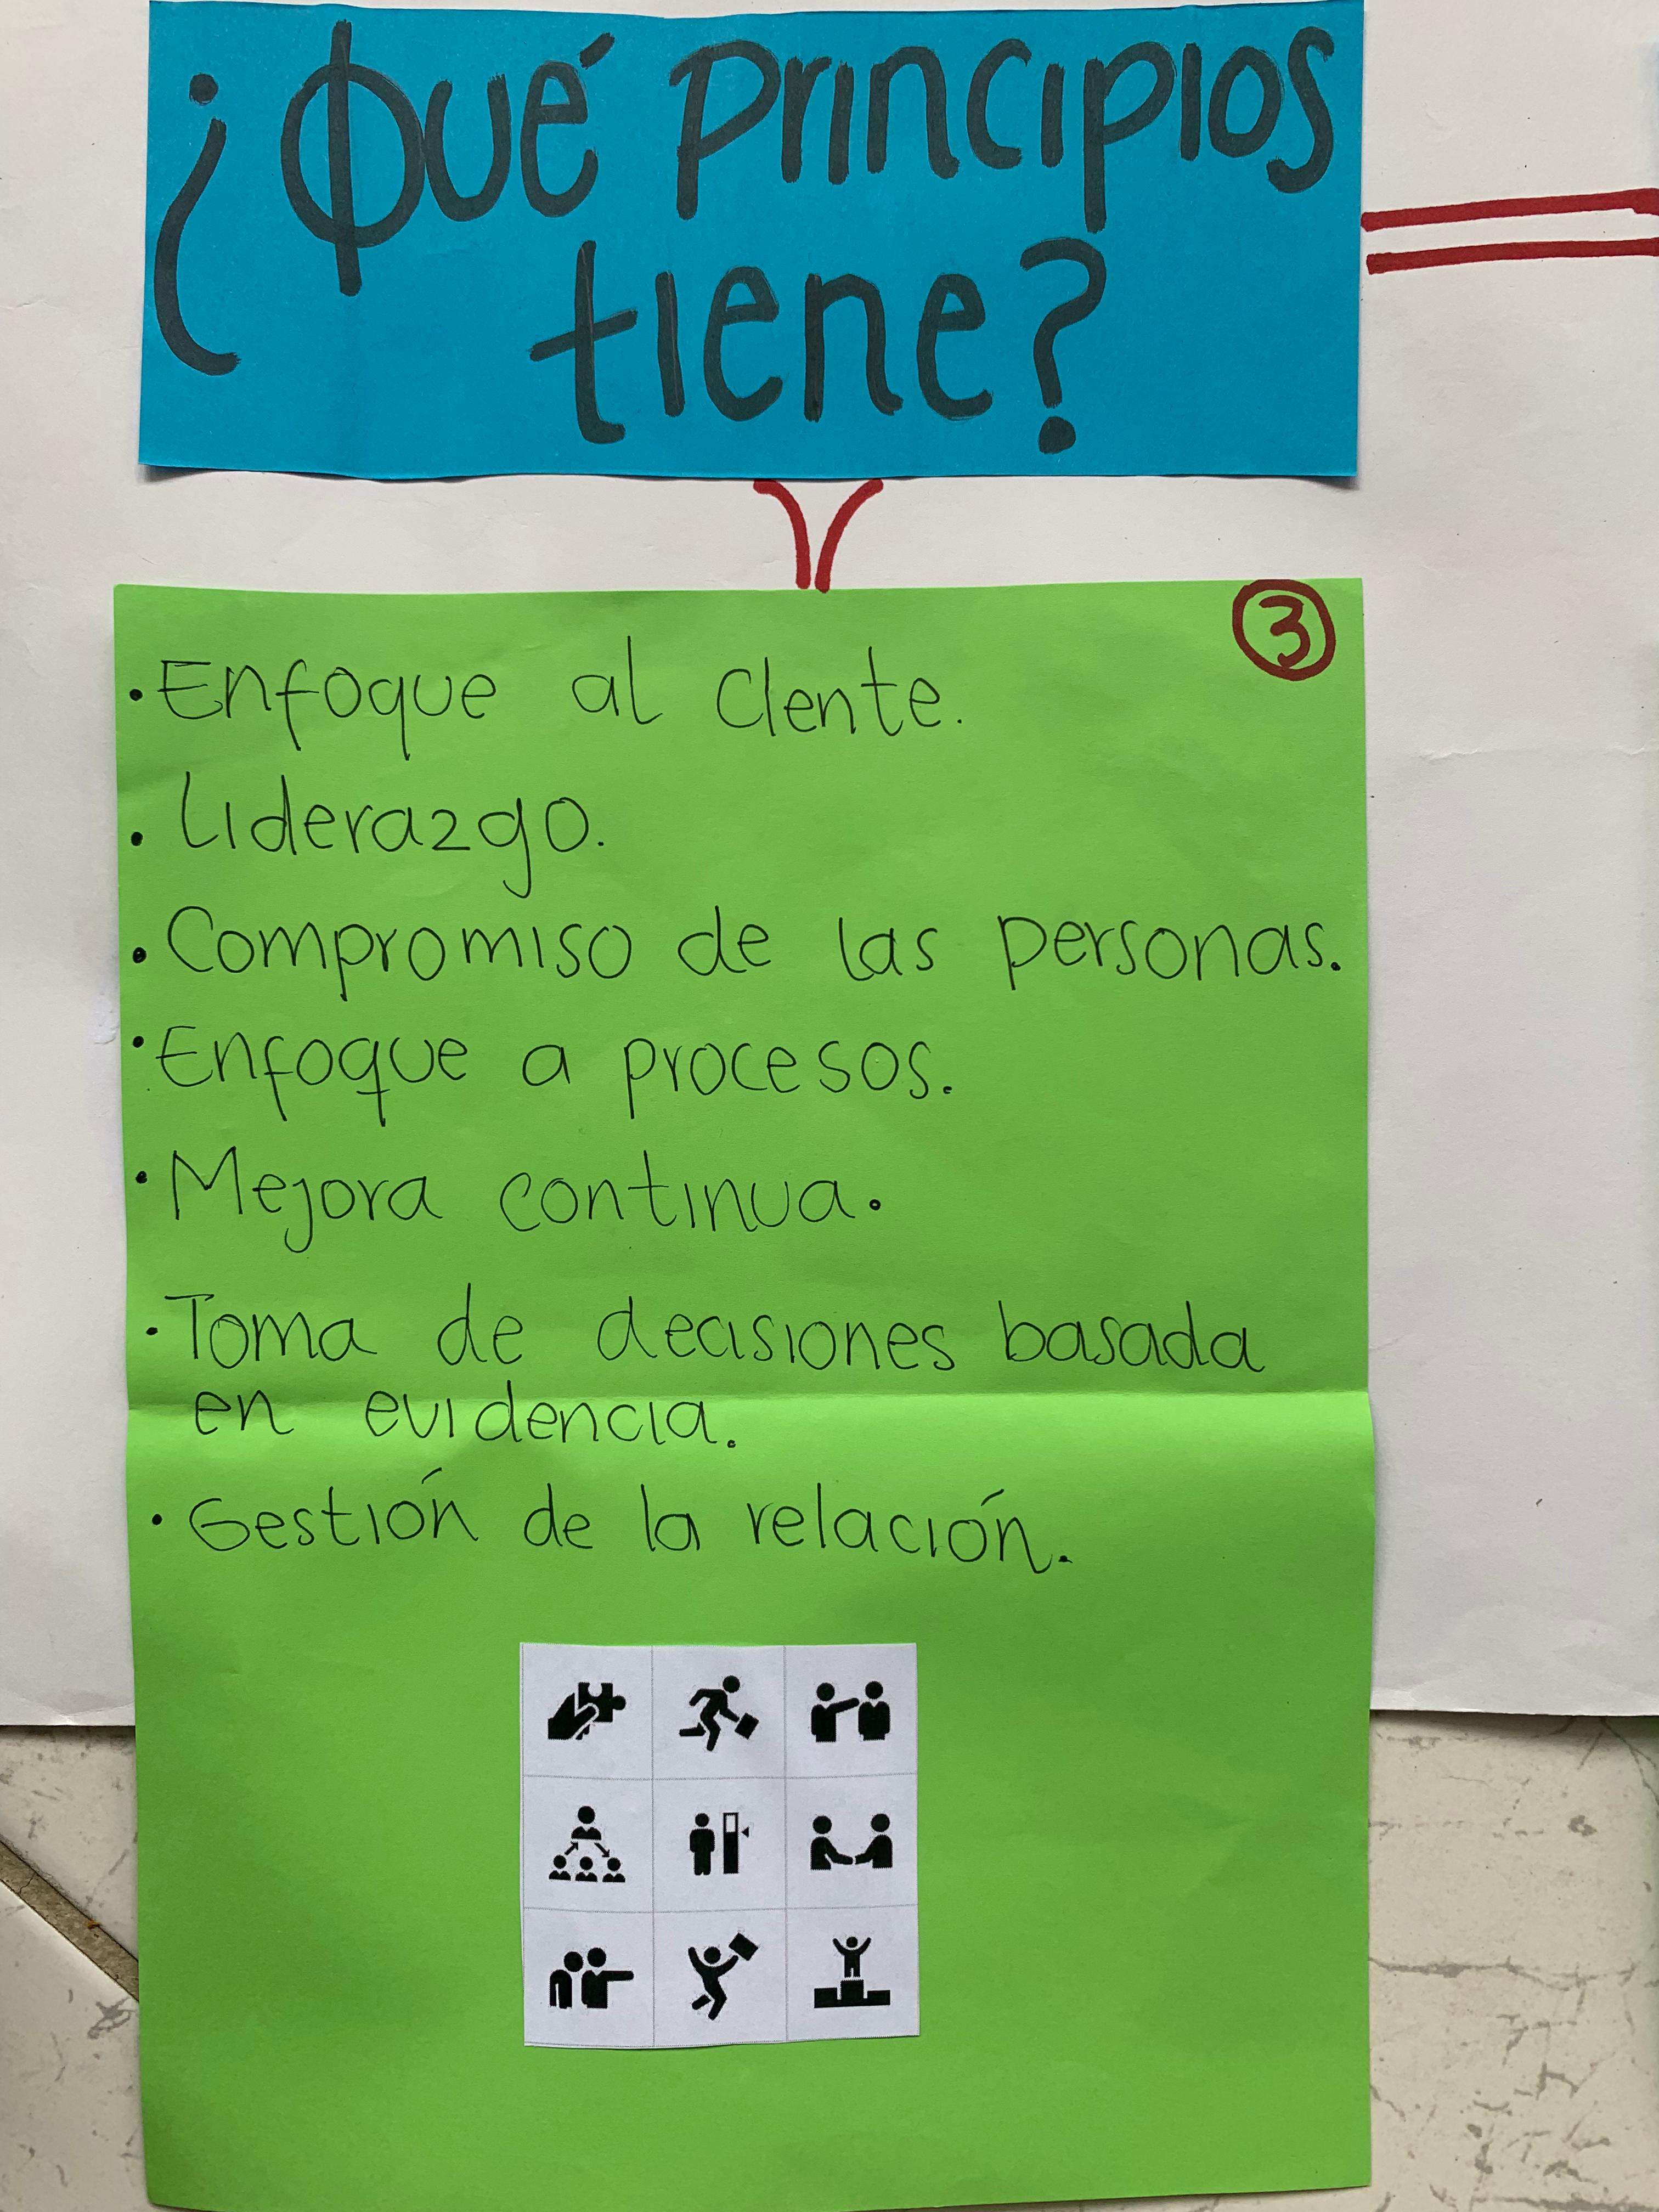 ¿Qué principios
tiene?
3
• Enfoque al Clente.
• Liderazgo.
• Compromiso de las personas.
• Enfoque a procesos.
• Mejora continua.
• Toma de decisiones basada
en evidencia.
• Gestión de la relación.